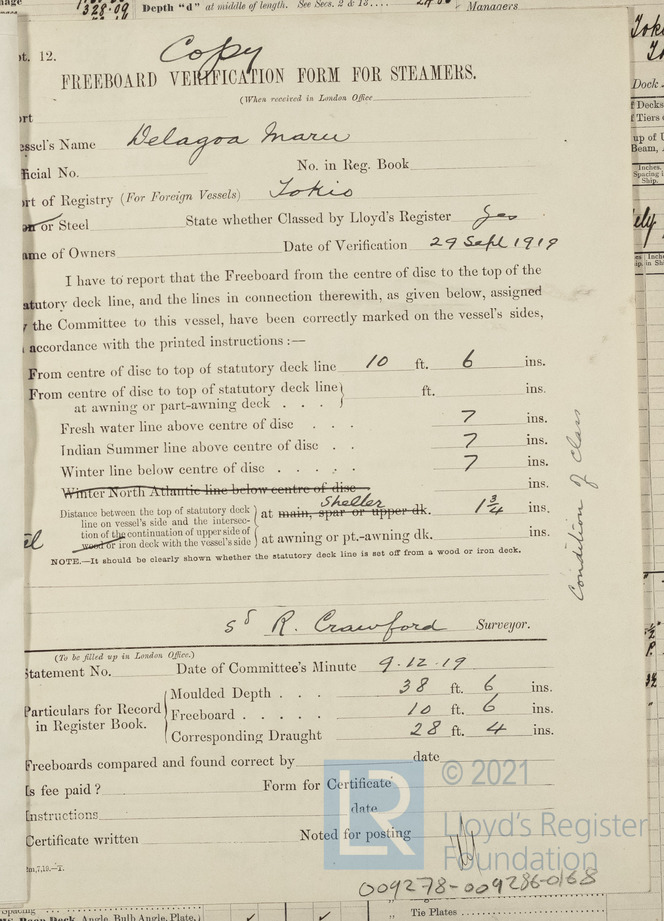 328.09 Depth "d" at middle of length. See Secs. 2 & 13.... Managers
pt. 12. Copy
FREEBOARD VERIFICATION FORM FOR STEAMERS.
(When received in London Office
ort
essel's Name Delagoa Maru
ficial No. No. in Reg. Book
rt of Registry (For Foreign Vessels) Tokio
on or Steel State whether Classed by Lloyd's Register Yes
ame of Owners Date of Verification 29 Sept 1919
I have to report that the Freeboard from the centre of disc to the top of the
atutory deck line, and the lines in connection therewith, as given below, assigned
y the Committee to this vessel, have been correctly marked on the vessel's sides,
accordance with the printed instructions :—
From centre of disc to top of statutory deck line 10 ft. 6 ins.
From centre of disc to top of statutory deck line ft. ins.
at awning or part-awning deck . . .
Fresh water line above centre of disc . . . 7 ins.
Indian Summer line above centre of disc . . 7 ins.
Winter line below centre of disc . . . . . 7 ins.
Winter North Atlantic line below centre of disc ins.
Shelter
Distance between the top of statutory deck line on vessel's side and the intersection of the continuation of upper side of wood or iron deck with the vessel's side
at main, spar or upper dk. 1 3/4 ins.
at awning or pt.-awning dk. ins.
NOTE.—It should be clearly shown whether the statutory deck line is set off from a wood or iron deck.
Condition of Class
sd R. Crawford Surveyor.
(To be filled up in London Office.)
Statement No. Date of Committee's Minute 9.12.19
Particulars for Record in Register Book.
Moulded Depth . . . 38 ft. 6 ins.
Freeboard . . . . . 10 ft. 6 ins.
Corresponding Draught 28 ft. 4 ins.
Freeboards compared and found correct by date
Is fee paid ? Form for Certificate
Instructions date
Certificate written Noted for posting
2m,7,19.—T.
LR © 2021
Lloyd's Register
Foundation
009278-009286-0168
Spacing
Deck, Angle, Bulb Angle, Plate, Tie Plates
Dock
f Decks
f Tiers
up of
Beam,
Inches.
Spacing in
Ship.